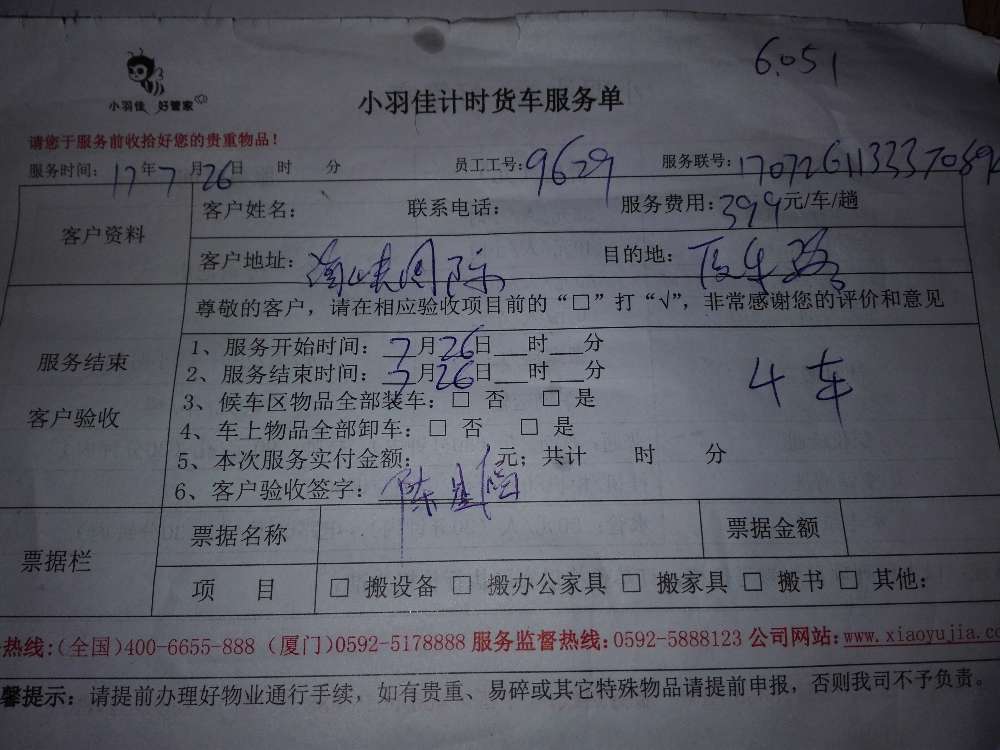 6.051
小羽佳 好管家
小羽佳计时货车服务单
请您于服务前收拾好您的贵重物品！
服务时间：17年7月26日 时 分 员工工号：9629 服务联号：
客户资料 客户姓名： 联系电话： 服务费用：399元/车/趟
客户地址：海峡国际 目的地：
尊敬的客户，请在相应验收项目前的“□”打“√”，非常感谢您的评价和意见
服务结束 客户验收
1、服务开始时间：7月26日___时___分
2、服务结束时间：7月26日___时___分
4车
3、候车区物品全部装车：□ 否 □ 是
4、车上物品全部卸车：□ 否 □ 是
5、本次服务实付金额： 元；共计 时 分
6、客户验收签字：陈
票据栏 票据名称 票据金额
项 目 □ 搬设备 □ 搬办公家具 □ 搬家具 □ 搬书 □ 其他：
热线：(全国)400-6655-888 (厦门)0592-5178888 服务监督热线：0592-5888123 公司网站：www.xiaoyujia.co
馨提示：请提前办理好物业通行手续，如有贵重、易碎或其它特殊物品请提前申报，否则我司不予负责。